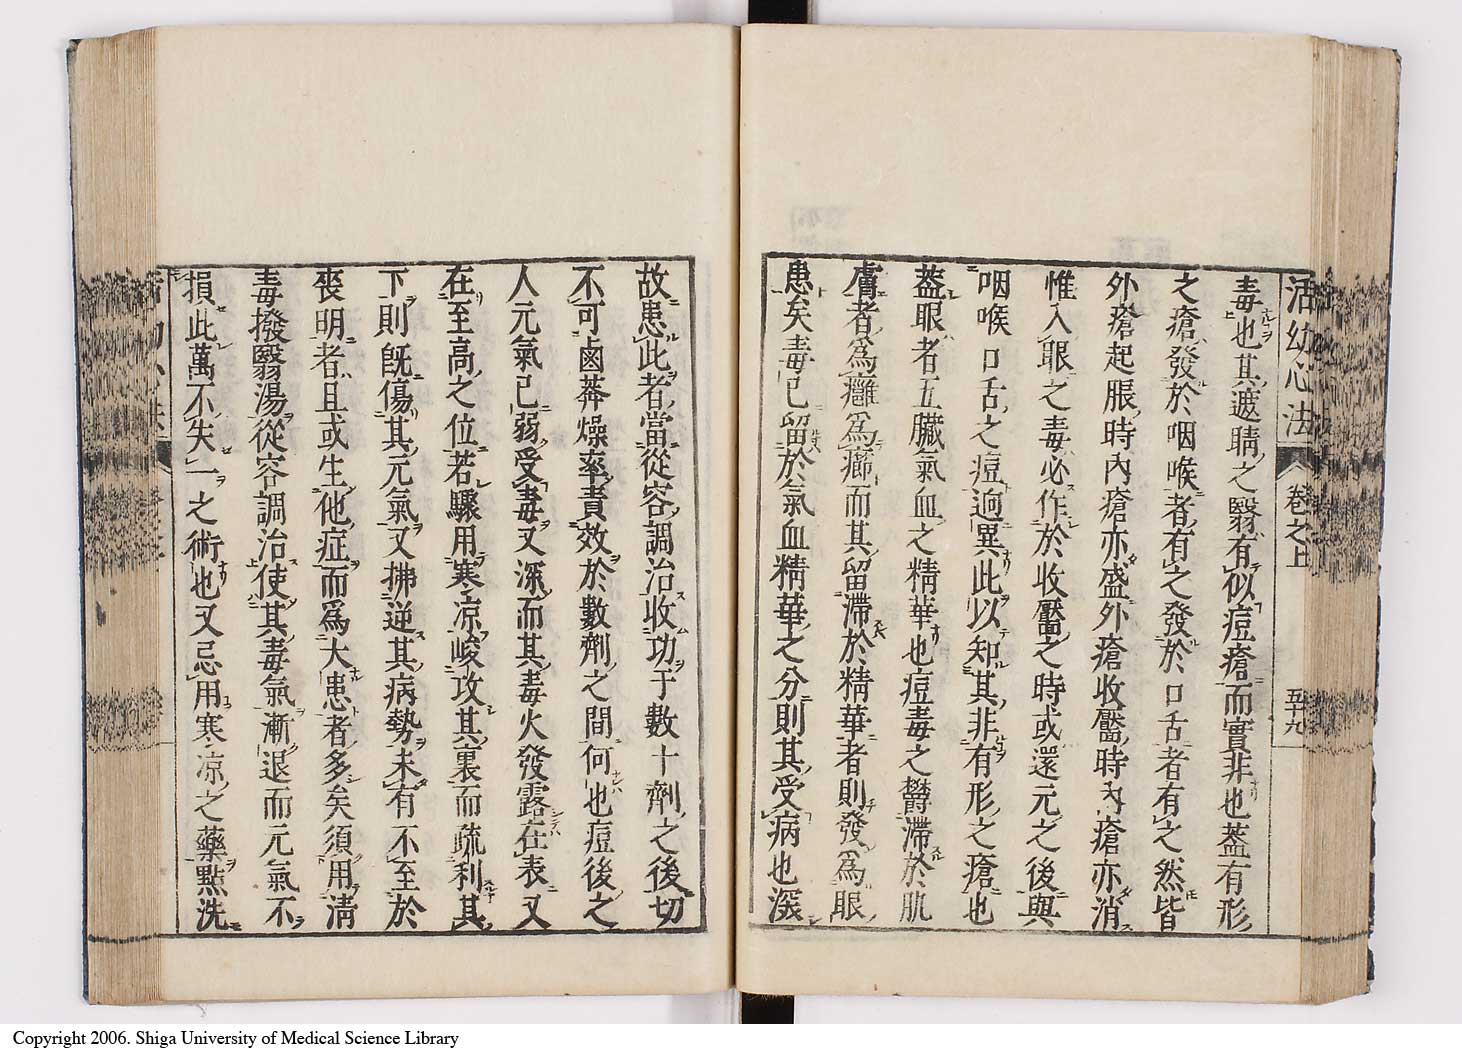 活幼心法 卷之上 五十九
毒也其遮睛之翳有似痘瘡而實非也蓋有形
之瘡發於咽喉者有之發於口舌者有之然皆
外瘡起脹時內瘡亦盛外瘡收靨時內瘡亦消
惟入眼之毒必作於收靨之時或還元之後與
咽喉口舌之痘迥異此以知其非有形之瘡也
蓋眼者五臟氣血之精華也痘毒之欝滯於肌
膚者爲癰爲癤而其留滯於精華者則發爲眼
患矣毒已留於氣血精華之分則其受病也深
故患此者當從容調治收功于數十劑之後切
不可鹵莽燥率責效於數劑之間何也痘後之
人元氣已弱受毒又深而其毒火發露在表又
在至高之位若驟用寒凉峻攻其裏而疏利其
下則旣傷其元氣又拂逆其病勢未有不至於
喪明者且或生他症而爲大患者多矣須用清
毒撥翳湯從容調治使其毒氣漸退而元氣不
損此萬不失一之術也又忌用寒凉之藥點洗
Copyright 2006. Shiga University of Medical Science Library